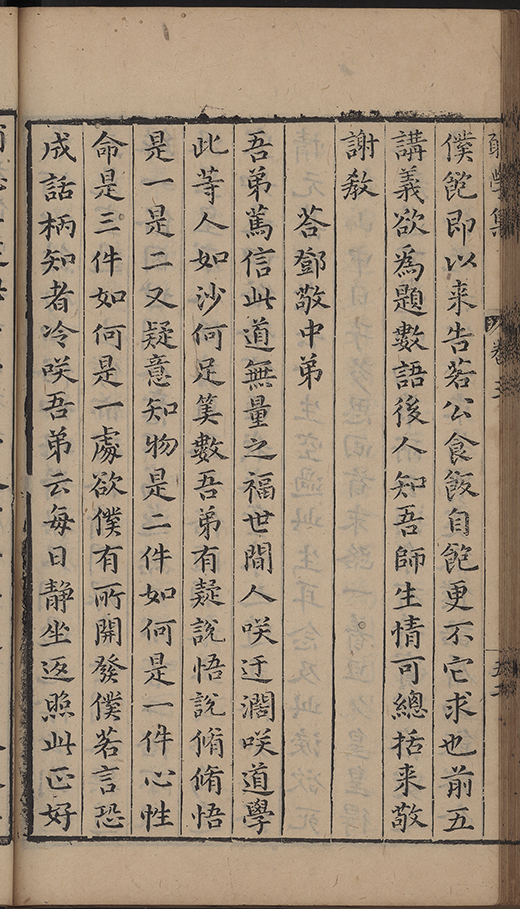 僕飽即以来告若公食飯自飽更不它求也前五
講義欲為題數語後人知吾師生情可總括来敬
謝教
答鄧敬中弟
吾弟篤信此道無量之福世間人咲迂濶咲道學
此等人如沙何足筭數吾弟有疑說悟說脩脩悟
是一是二又疑意知物是二件如何是一件心性
命是三件如何是一處欲僕有所開發僕若言恐
成話柄知者冷咲吾弟云每日静坐返照此正好